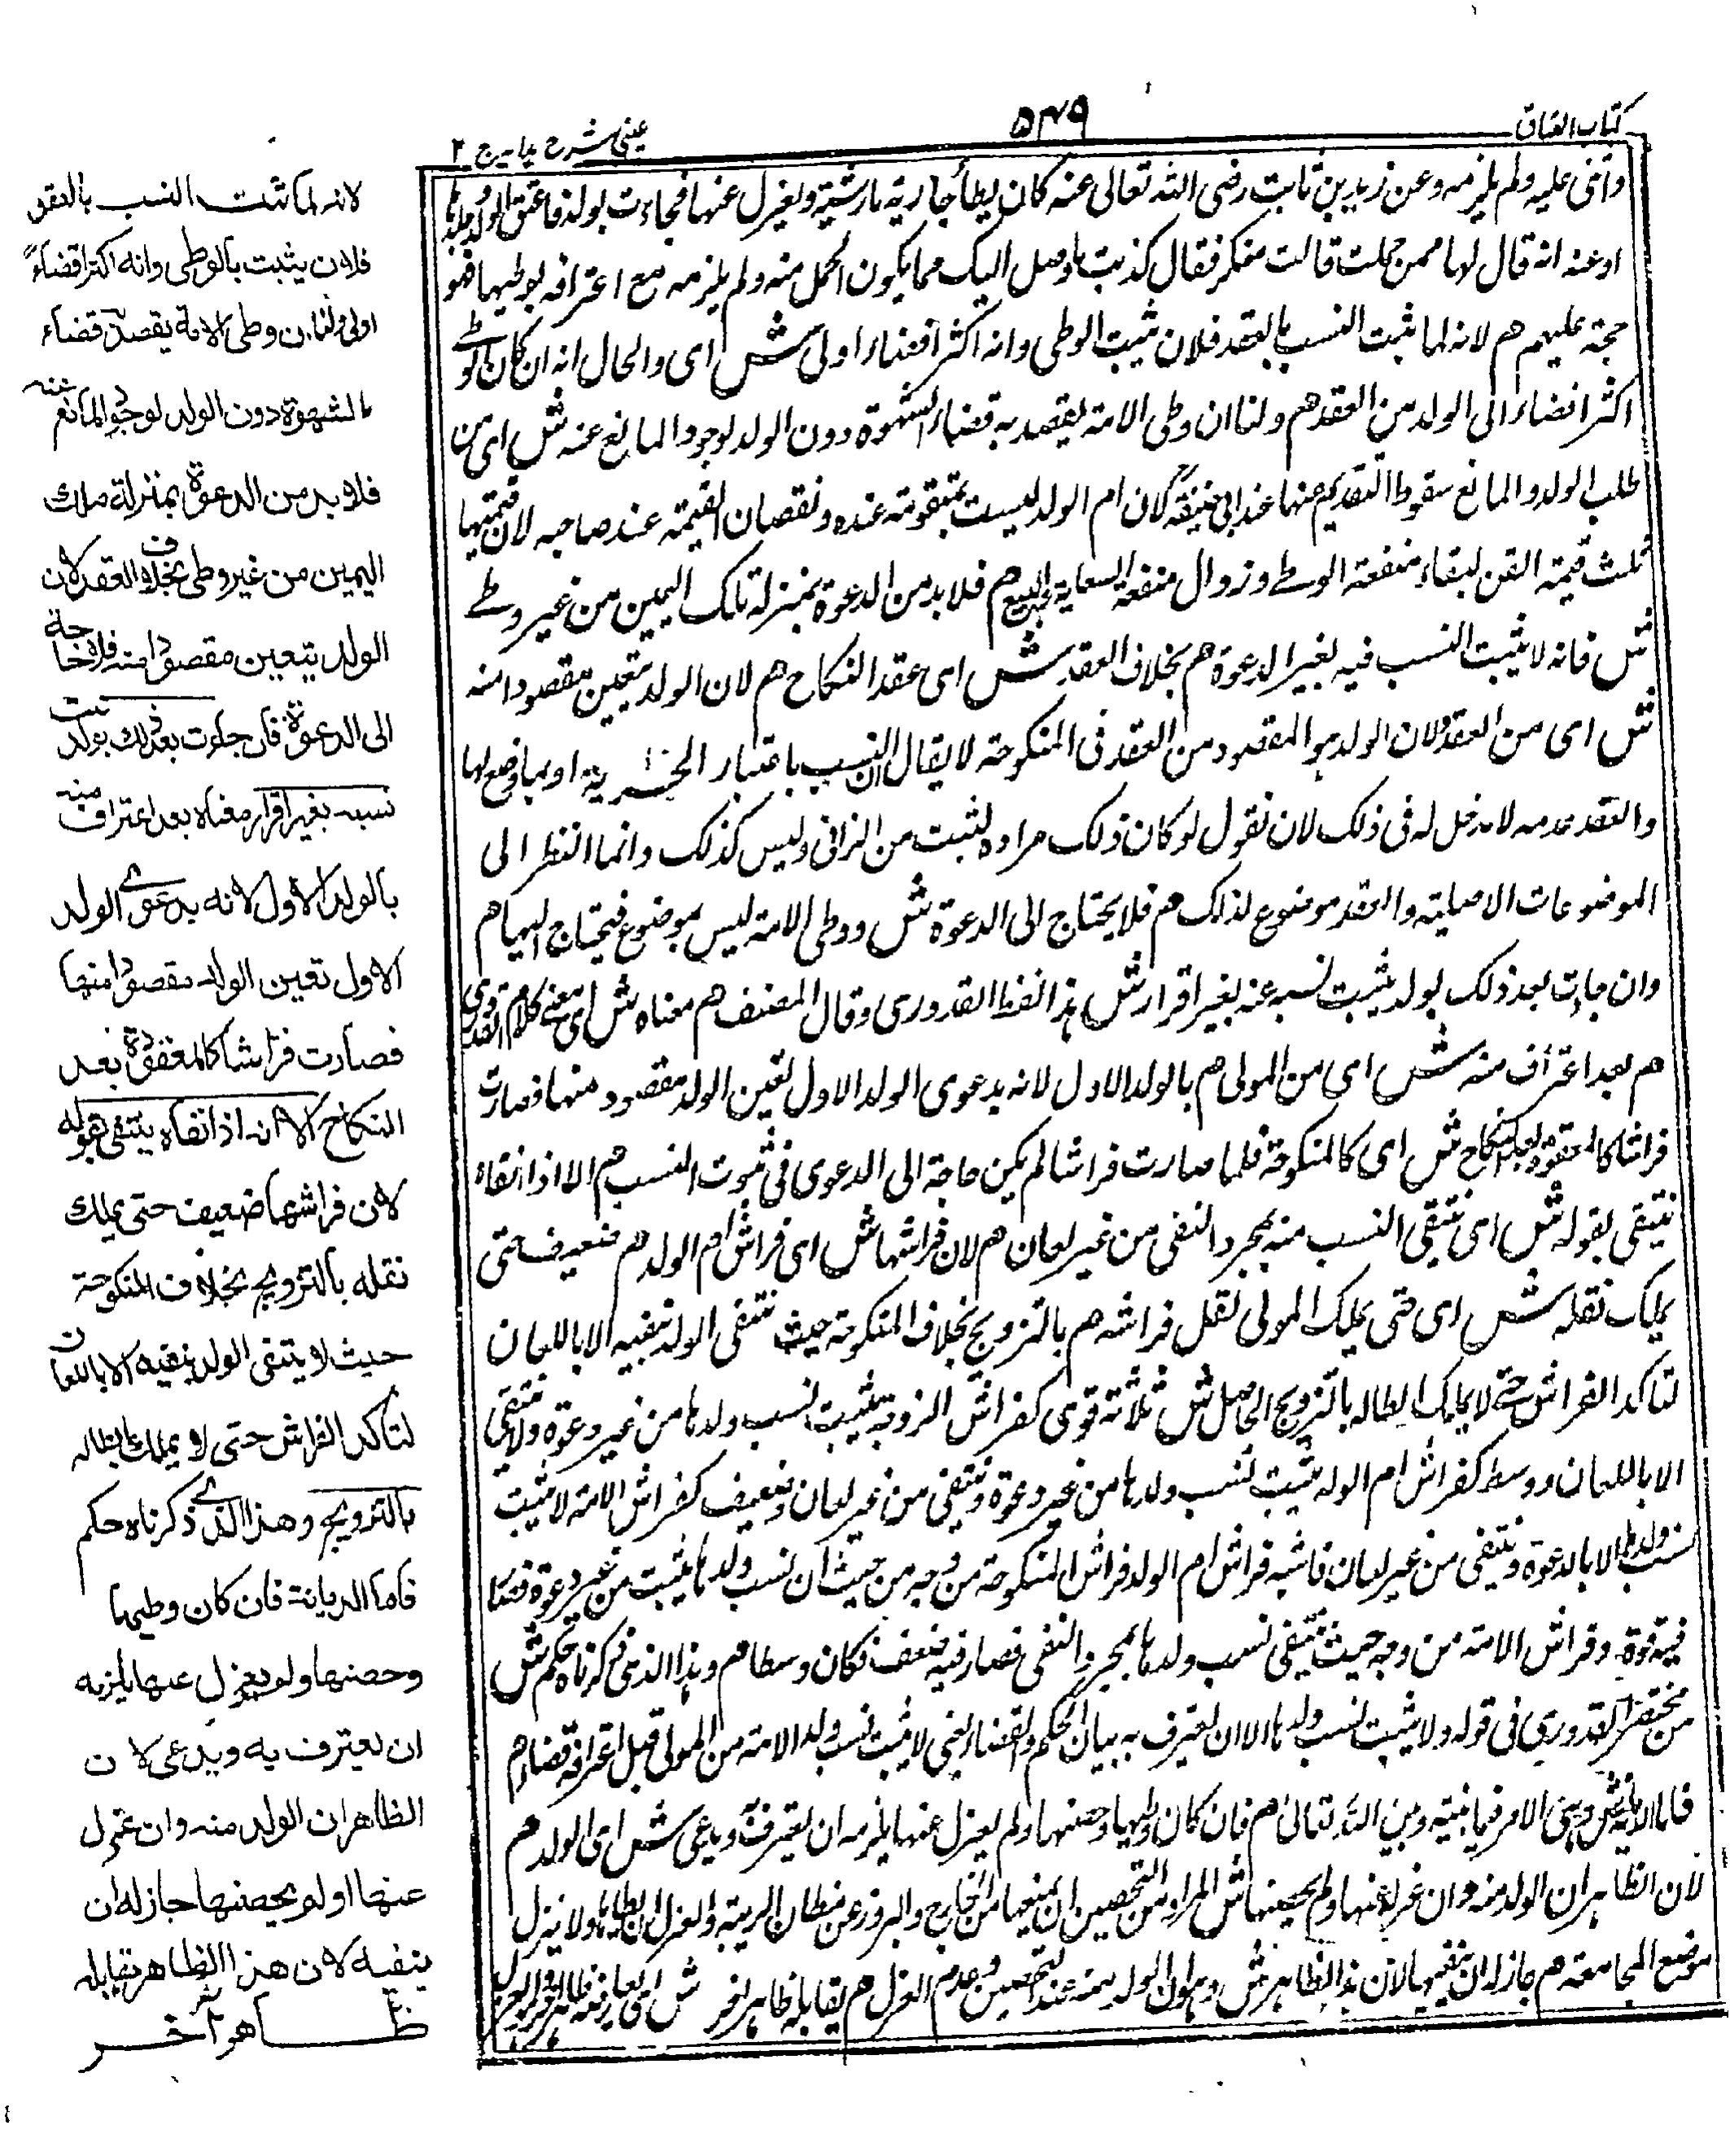 كتاب العتاق
٥٤٩
عينى شرح هدايه ج ٢
وانتفى عليه ولم يلزمه وعن زيد بن ثابت رضى الله تعالى عنه كان يطأ جارية فارسية ويعزل عنها فجاءت بولد فاعتق الولد وجلدها
او عنه انه قال لها ممن حملت قالت منك فقال كذبت ما وصل اليك مما يكون الحمل منه ولم يلزمه مع اعترافه بوطيها فهو
حجة عليهم هم لانه لما ثبت النسب بالعقد فلان يثبت الوطى وانه اكثر افضاء اولى ش اى والحال انه ان كان الوطے
اكثر افضاء الى الولد من العقد هم ولنا ان وطى الامة يقصد به قضاء الشهوة دون الولد لوجود المانع عنه ش اى من
طلب الولد والمانع سقوط التقديم عنها عند ابى حنيفة لان ام الولد ليست بمتقومة عنده ونقصان القيمة عند صاحبه لان قيمتها
ثلث قيمة القن لبقاء منفعة الوطے وزوال منفعة السعاية والبيع هم فلا بد من الدعوة بمنزلة تلك اليمين من غير وطے
ش فانه لا يثبت النسب فيه بغير الدعوة هم بخلاف العقد ش اى عقد النكاح هم لان الولد يتعين مقصودا منه
ش اى من العقد ولان الولد هو المقصود من العقد فى المنكوحة لا يقال ان النسب باعتبار الجزئية او بما وضع لها
والعقد عدمه لا مدخل له فى ذلك لان نقول لو كان ذلك مراده لثبت من الزانى وليس كذلك وانما النظر الى
الموضوعات الاصلية والعقد موضوع لذلك هم فلا يحتاج الى الدعوة ش ووطى الامة ليس بموضوع فيحتاج اليها هم
وان جات بعد ذلك بولد يثبت نسبه عنه بغير اقرار ش هذا لفظ القدورى وقال المصنف هم معناه ش اى معنے كلام القدورى
هم بعد اعتراف منه ش اى من المولى هم بالولد الاول لانه بدعوى الولد الاول تعين الولد مقصود منها فصارت
فراشا كالمعقودة بعد النكاح ش اى كالمنكوحة فلما صارت فراشا لم يكن حاجة الى الدعوى فى ثبوت النسب هم الا اذا نفاه
ينتفى بقوله ش اى ينتفى النسب منه بمجرد النفى من غير لعان هم لان فراشها ش اى فراش ام الولد هم ضعيف حتى
يملك نقله ش اى حتى يملك المولى نقل فراشه هم بالتزويج بخلاف المنكوحة حيث ينتفى الولد بنفيه الا باللعان
لتاكد الفراش حتے لا يملك ابطاله بالتزويج الحاصل ش ثلاثة قوى كفراش الزوجة يثبت نسب ولدها من غير دعوة ولا ينتفى
الا باللعان ووسط كفراش ام الولد يثبت نسب ولدها من غير دعوة وينتفى من غير لعان وضعيف كفراش الامة لا يثبت
نسب ولدها الا بالدعوة وينتفى من غير لعان فاشبه فراش ام الولد فراش المنكوحة من وجه من حيث ان نسب ولدها يثبت من غير دعوة فصار
فيه قوة وفراش الامة من وجه حيث ينتفى نسب ولدها بمجرد النفى فصار فيه ضعف فكان وسطا هم وهذا الذى ذكرناه حكم ش
من مختصر القدورى فى قوله ولا يثبت نسب ولدها الا ان يعترف به بيان الحكم والقضاء يعنى لا يثبت نسب ولد الامة من المولى قبل اعترافه قضاء هم
فاما الديانة ش وهى الامر فيما بينه وبين الله تعالى هم فان كان وطيها وحصنها ولم يعزل عنها يلزمه ان يعترف به ويدعى ش اى الولد هم
لان الظاهر ان الولد منه وان عزل عنها ولم يحصنها ش المراد من التحصين ان يمنعها من الخارج والبروز عن مظان الريبة والعزل ان يطاها ولا ينزل
موضع المجامعة هم جاز له ان ينفيه لان هذا الظاهر ش وهو كون الولد منه عند التحصين وعدم العزل هم يقابله ظاهر اخر ش اى يعارضه ظاهر اخر
لانه لما ثبت النسب بالعقد
فلان يثبت بالوطى وانه اكثر اقضاءً
اولى ولنا ان وطى الامة يقصد به قضاء
الشهوة دون الولد لوجود المانع عنه
فلا بد من الدعوة بمنزلة ملك
اليمين من غير وطى بخلاف العقد لان
الولد يتعين مقصودا منه فلا حاجة
الى الدعوة فان جاءت بعد ذلك بولد يثبت
نسبه بغير اقرار معناه بعد اعتراف منه
بالولد الاول لانه بدعوى الولد
الاول تعين الولد مقصودا منها
فصارت فراشا كالمعقودة بعد
النكاح الا انه اذا نفاه ينتفى بقوله
لان فراشها ضعيف حتى يملك
نقله بالتزويج بخلاف المنكوحة
حيث لا ينتفى الولد بنفيه الا باللعان
لتاكد الفراش حتى لا يملك ابطاله
بالتزويج وهذا الذى ذكرناه حكم
فاما الديانة فان كان وطيها
وحصنها ولم يعزل عنها يلزمه
ان يعترف به ويدعى لان
الظاهر ان الولد منه وان عزل
عنها او لم يحصنها جاز له ان
ينفيه لان هذا الظاهر يقابله
ظاهر آخر